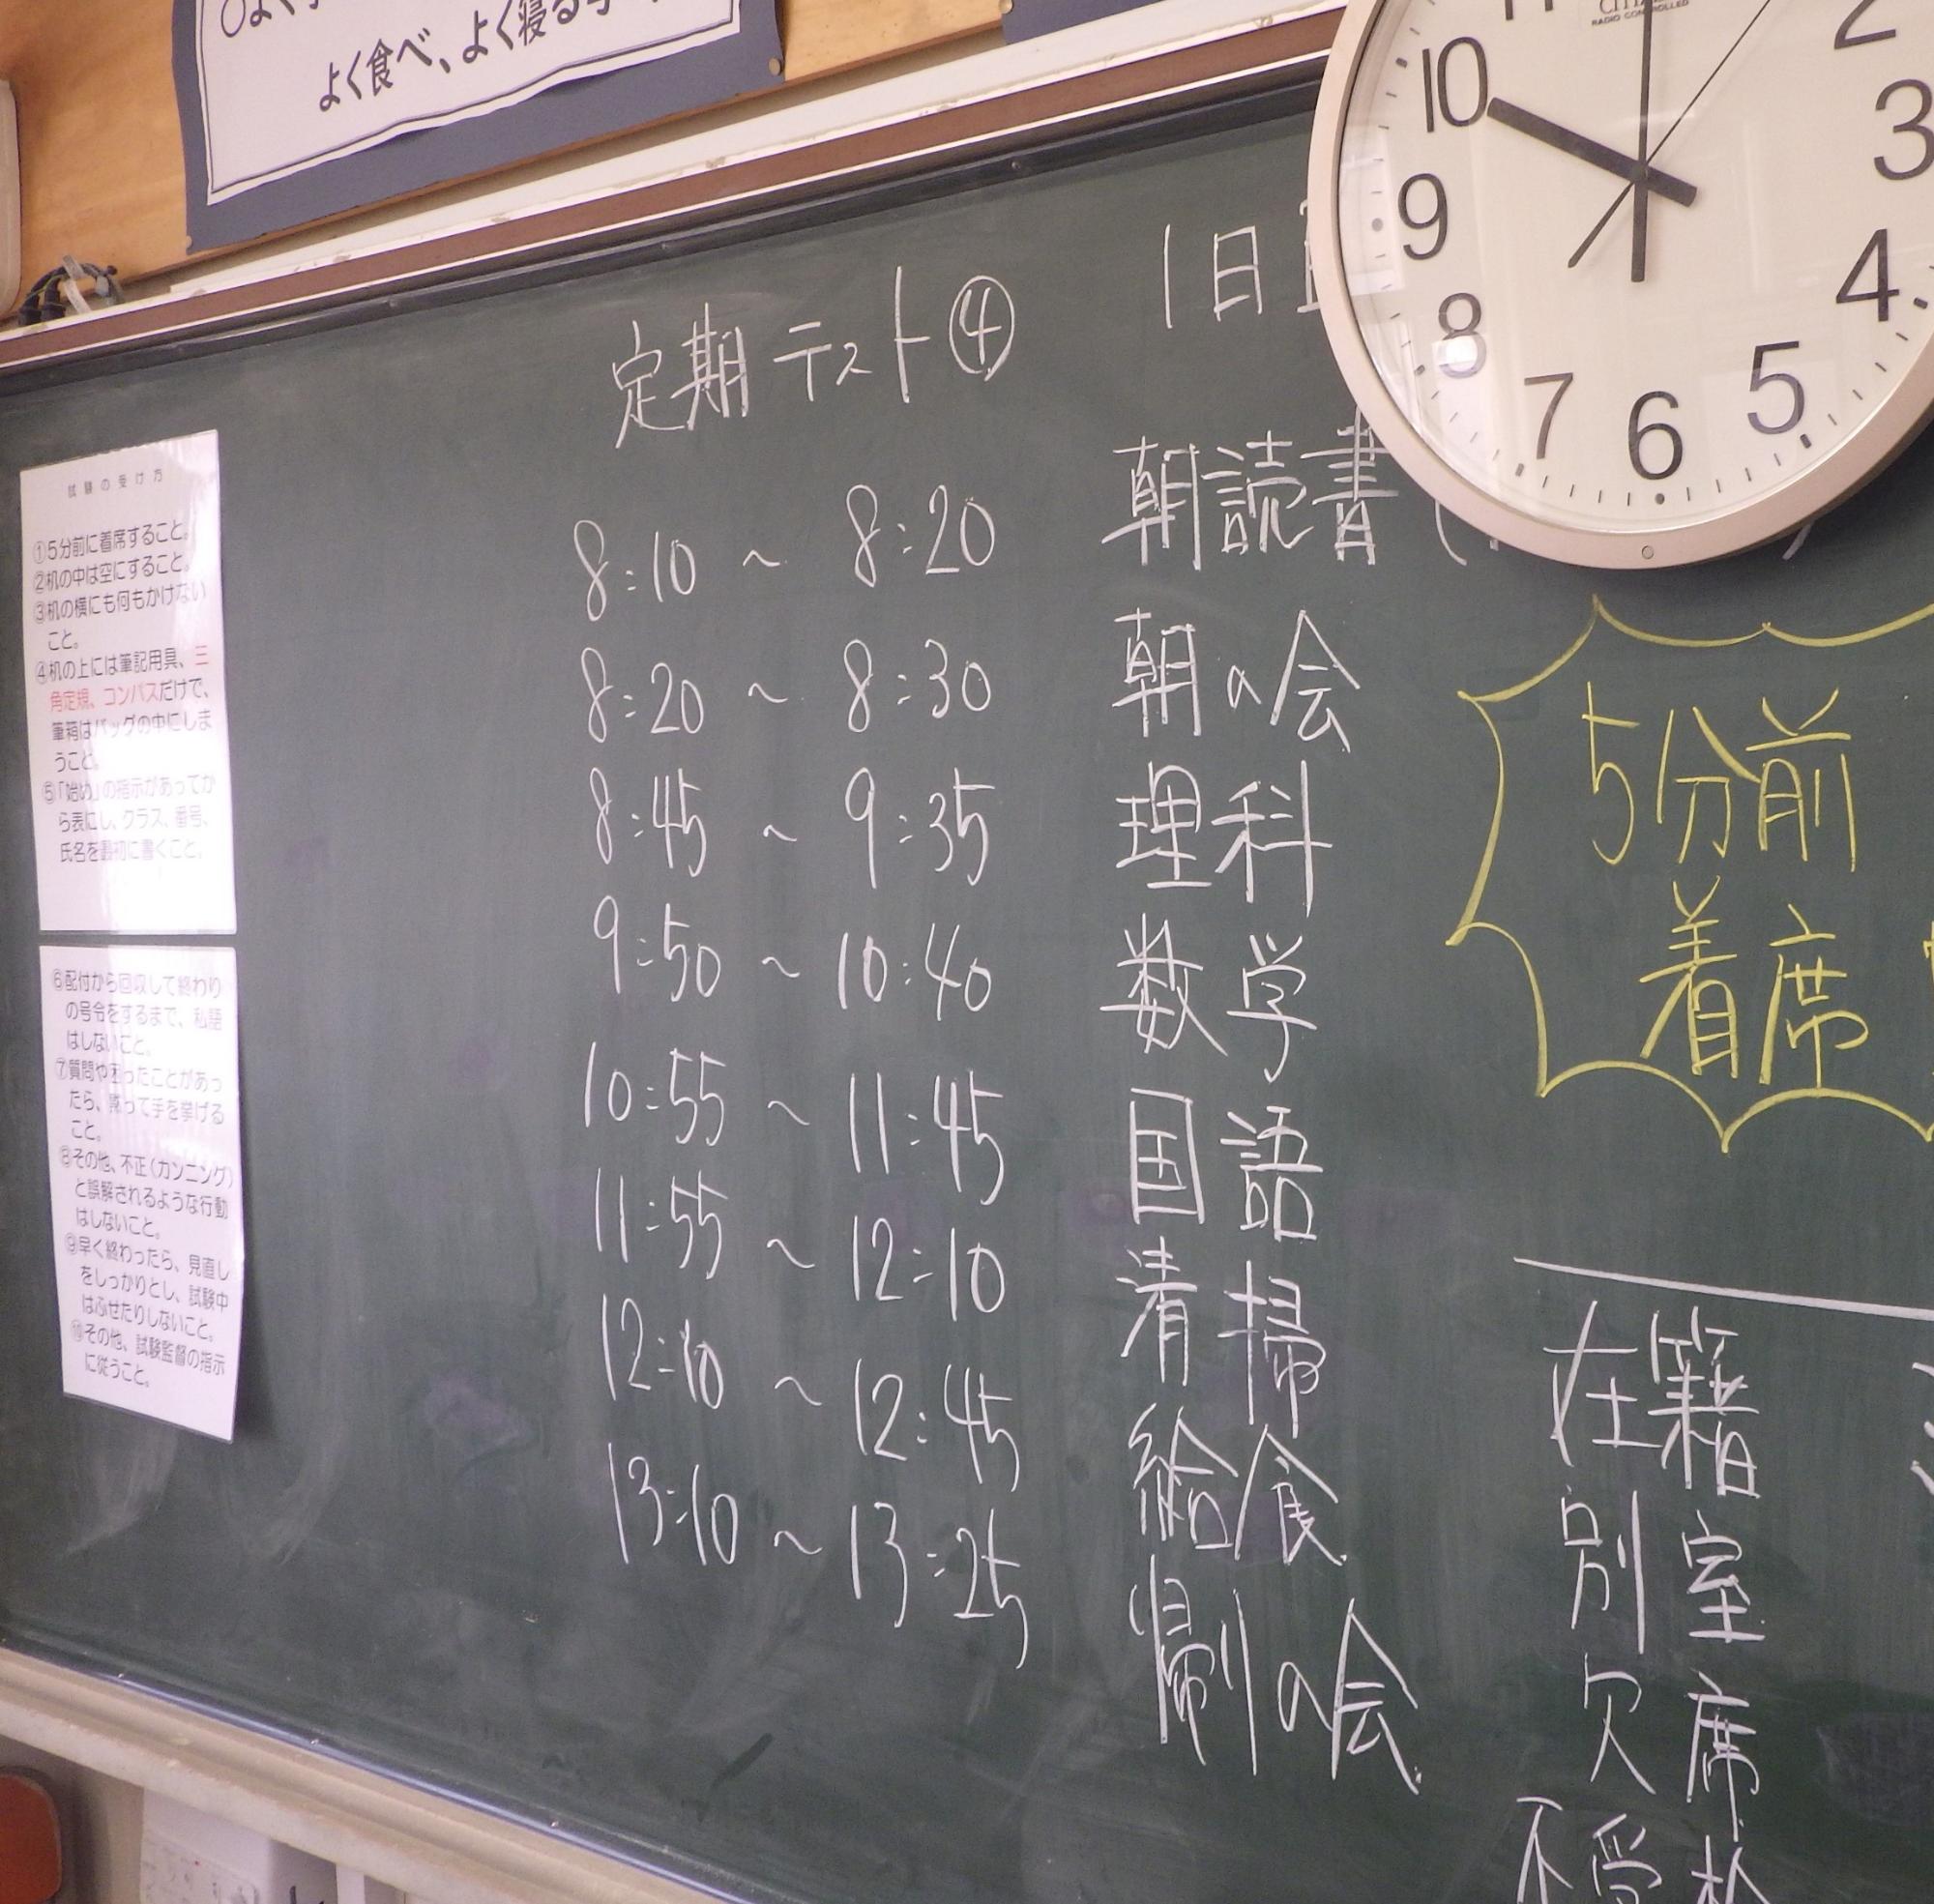 よく食べ、よく寝る
RADIO CONTROLLED
10
2
3
9
4
8
5
7
6
定期テスト④
1日
8:10 ～ 8:20 朝読書
8:20 ～ 8:30 朝の会
8:45 ～ 9:35 理科
9:50 ～ 10:40 数学
10:55 ～ 11:45 国語
11:55 ～ 12:10 清掃
12:10 ～ 12:45 給食
13:10 ～ 13:25 帰りの会
5分前
着席
在籍
別室
欠席
不受検
試験の受け方
①5分前に着席すること。
②机の中は空にすること。
③机の横にも何もかけない
こと。
④机の上には筆記用具、三
角定規、コンパスだけで、
筆箱はバッグの中にしま
うこと。
⑤「始め」の指示があってか
ら表にし、クラス、番号、
氏名を最初に書くこと。
⑥配付から回収して終わり
の号令をするまで、私語
はしないこと。
⑦質問や困ったことがあっ
たら、黙って手を挙げる
こと。
⑧その他、不正（カンニング）
と誤解されるような行動
はしないこと。
⑨早く終わったら、見直し
をしっかりとし、試験中
はふせたりしないこと。
⑩その他、試験監督の指示
に従うこと。